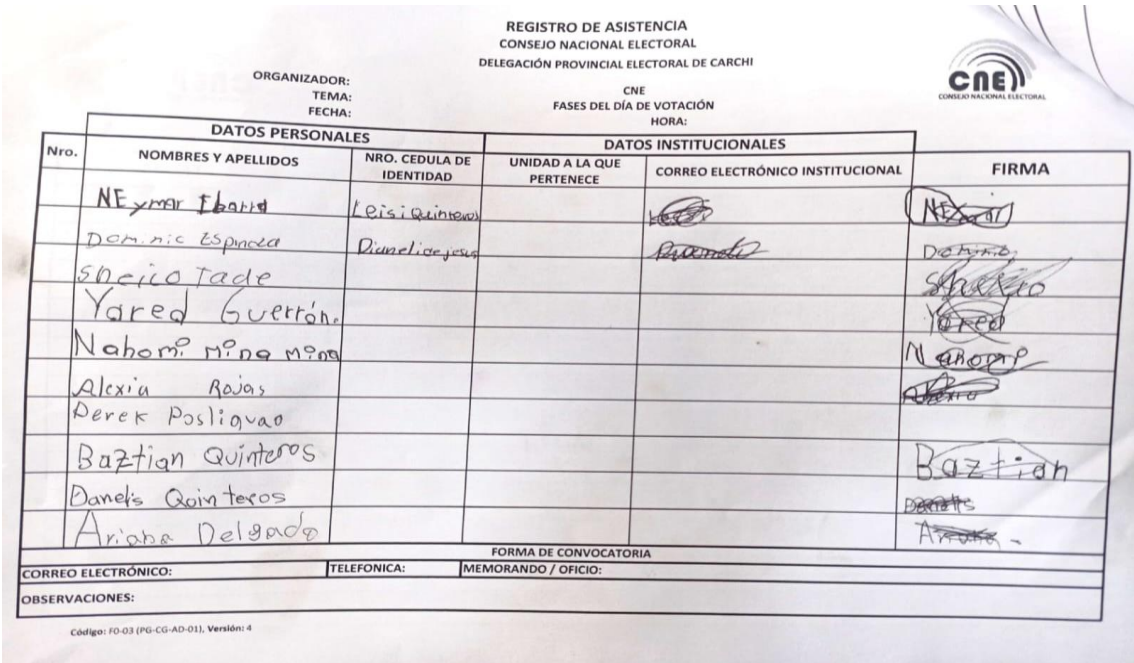 REGISTRO DE ASISTENCIA
CONSEJO NACIONAL ELECTORAL
DELEGACIÓN PROVINCIAL ELECTORAL DE CARCHI
CNE
CONSEJO NACIONAL ELECTORAL
ORGANIZADOR:
TEMA: CNE
FECHA: FASES DEL DÍA DE VOTACIÓN
HORA:
DATOS PERSONALES DATOS INSTITUCIONALES
Nro. NOMBRES Y APELLIDOS NRO. CEDULA DE IDENTIDAD UNIDAD A LA QUE PERTENECE CORREO ELECTRÓNICO INSTITUCIONAL FIRMA
NEymar Ibarra Leisi Quinteros
Dominic Espinoza Dianelice jesus Dominic
Sheico Tade
Yared Guerrón Yared
Nahomi Mina Mina Nahomi
Alexia Rojas Alexia
Derek Posligua
Baztian Quinteros Baztian
Danelis Quinteros Danelis
Ariana Delgado Ariana
FORMA DE CONVOCATORIA
CORREO ELECTRÓNICO: TELEFONICA: MEMORANDO / OFICIO:
OBSERVACIONES:
Código: FO-03 (PG-CG-AD-01), Versión: 4